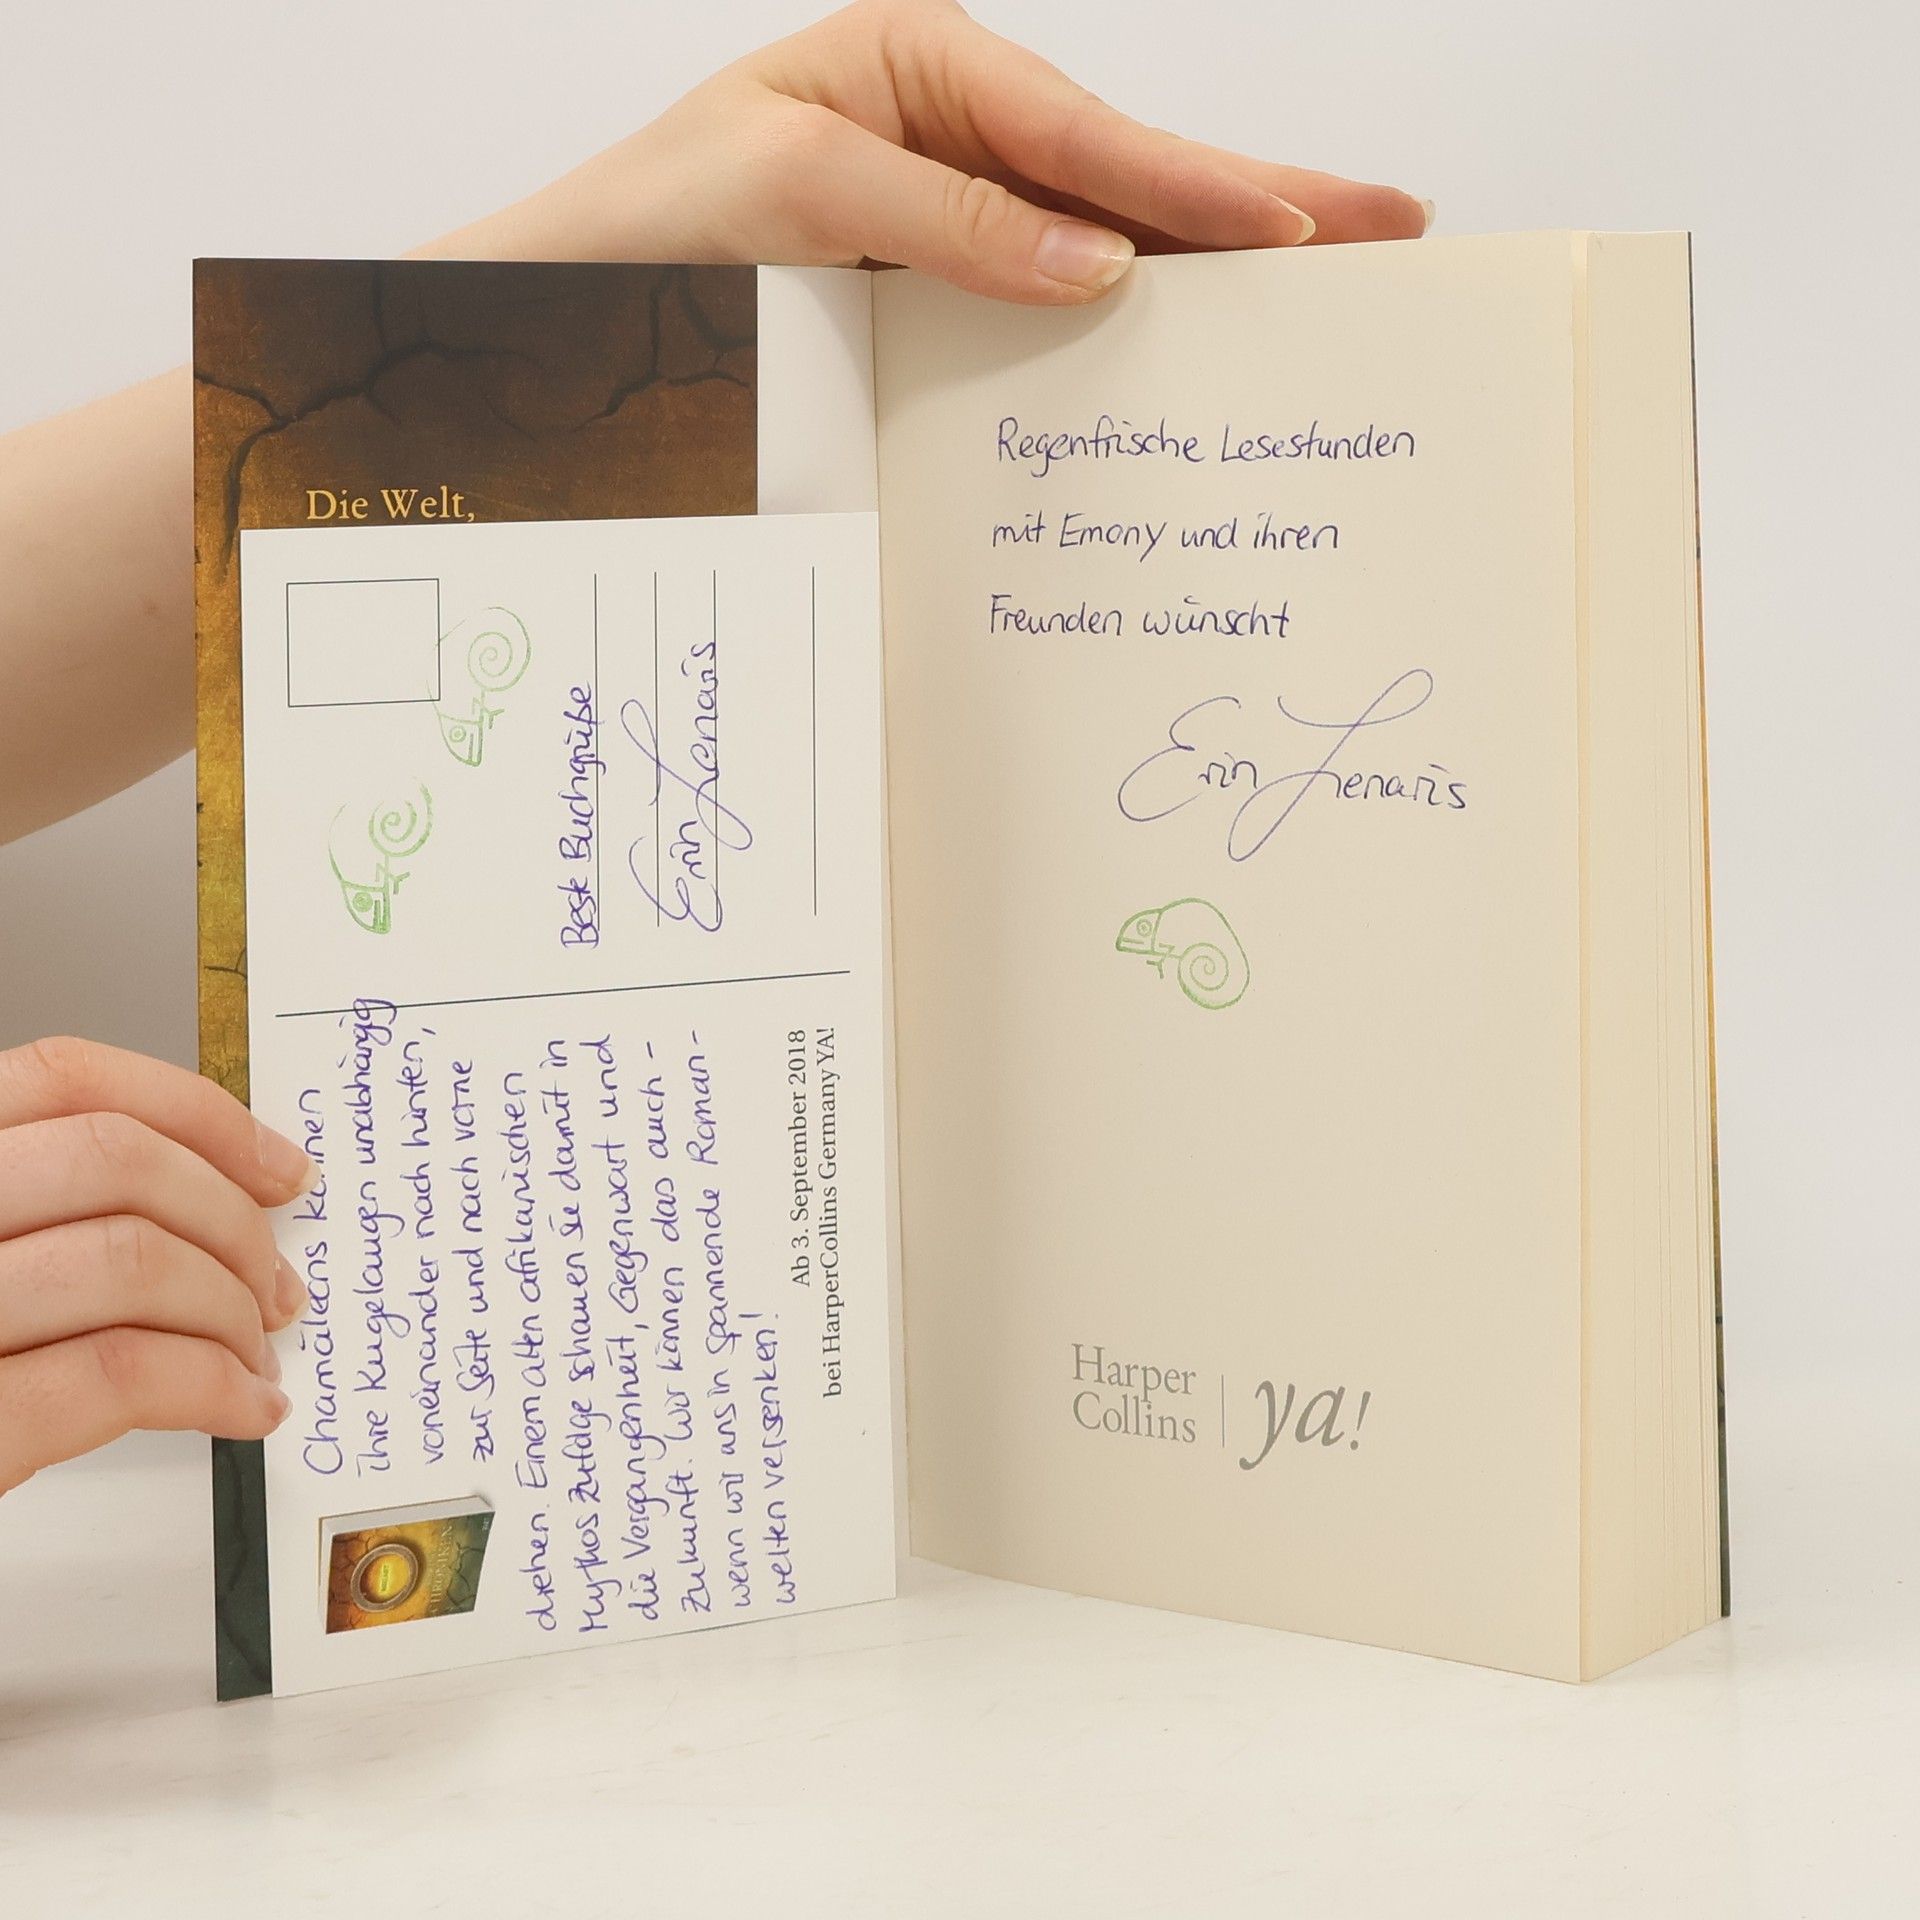 Die Welt,
Chamäleons können
ihre Kugelaugen unabhängig
voneinander nach hinten,
zur Seite und nach vorne
drehen. Einem alten afrikanischen
Mythos zufolge schauen sie damit in
die Vergangenheit, Gegenwart und
Zukunft. Wir können das auch -
wenn wir uns in spannende Roman-
welten versenken!
Ab 3. September 2018
bei HarperCollins Germany YA!
Beste Buchgrüße
Erin Lenaris
Regenfrische Lesestunden
mit Emony und ihren
Freunden wünscht
Erin Lenaris
Harper
Collins
ya!